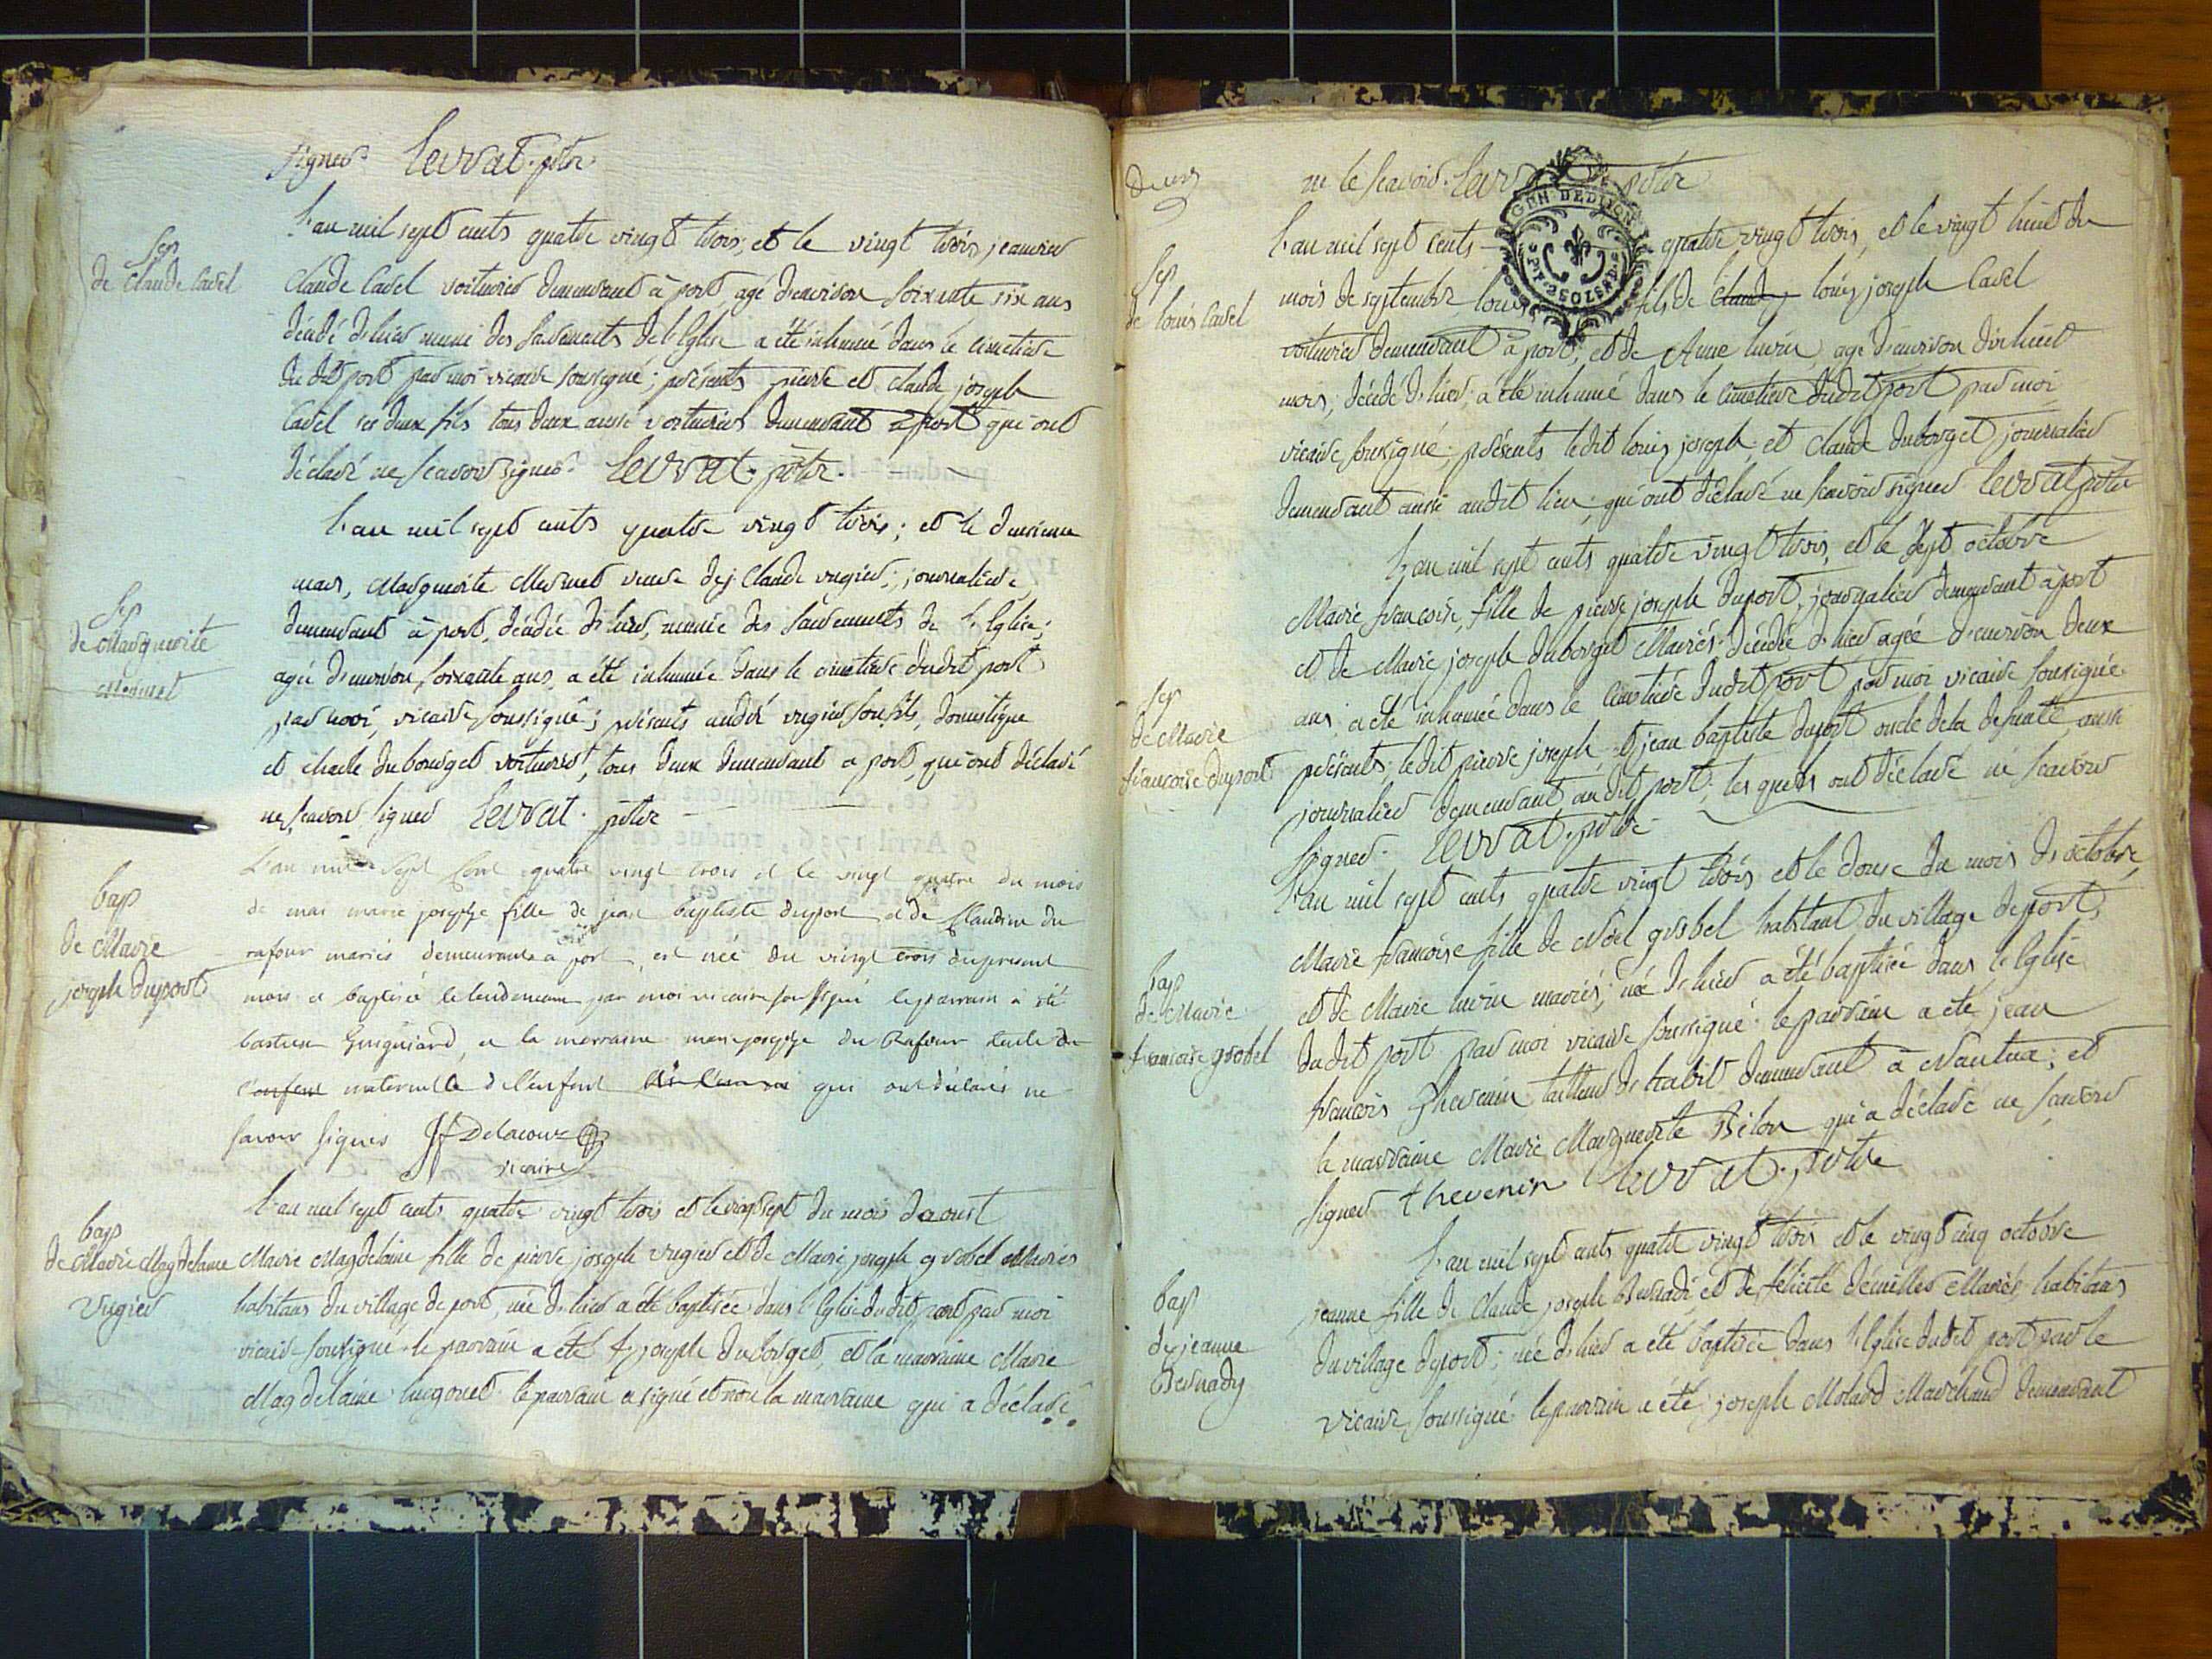 signer levrat. ptre.
l'an mil sept cents quatre vingt trois, et le vingt trois janvier
Sep
de Claude Cadel
Claude Cadel voiturier demeurant à port agé d'environ soixante six ans
décédé d'hier muni des sacrements de l'Eglise a été inhumé dans le cimetière
du dit port par moi vicaire soussigné; présents pierre et claude joseph
Cadel ses deux fils tous deux aussi voituriers demeurant a port qui ont
déclaré ne scavoir signer. levrat. ptre.
l'an mil sept cents quatre vingt trois; et le deuxieme
Sep
de Marguerite
Mermet
mars, Marguerite Mermet veuve de j. Claude vugier, journaliere,
demeurant à port, décédée d'hier, munie des sacrements de l'Eglise;
agée d'environ soixante ans, a été inhumée dans le cimetiere dudit port
par moi, vicaire soussigné; présents andré vugier son fils, domestique
et charle dubourget voiturier, tous deux demeurant a port, qui ont déclaré
ne scavoir signer levrat. ptre
bap
de Marie
joseph duport
L'an mil sept cent quatre vingt trois et le vingt quatre du mois
de mai marie josephe fille de jean baptiste duport et de Claudine du
rafour mariés demeurants a port, est née du vingt trois du present
mois et baptisée le lendemain par moi vicaire soussigné le parrain a été
bastien Guiguiard, et la marraine marie josephe du Rafour tante
l'enfent maternelle de l'enfent qui ont déclarés ne
savoir signer Jf Delacour
vicaire
l'an mil sept cents quatre vingt trois et le vingt sept du mois daoust
bap
de Marie Magdelaine
vugier
Marie Magdelaine fille de pierre joseph vugier et de Marie joseph grobel Mariés
habitans du village de port, née d'hier a été baptisée dans l'Eglise dudit port par moi
vicaire soussigné. le parrain a été f. joseph dubourget, et la marraine Marie
Magdelaine hugonet. le parrain a signé et non la marraine qui a déclaré
ne le scavoir. levrat ptre
GEN DE DIJON
P.P. 2 SOLS 8 D.
l'an mil sept cents quatre vingt trois, et le vingt huit du
Sep
de louis Cadel
mois de septembre, louis fils de Claude louis joseph Cadel
voiturier demeurant à port, et de Anne agé d'environ dix huit
mois, décédé d'hier, a été inhumé dans le cimetiere dudit port par moi
vicaire soussigné; présents ledit louis joseph et Claude dubourget journalier
demeurant aussi audit lieu, qui ont déclaré ne scavoir signer levrat ptre
l'an mil sept cents quatre vingt trois, et le sept octobre
Sep
de Marie
francoise duport
Marie francoise, fille de pierre joseph duport, journalier demeurant à port
et de Marie joseph dubourget Mariés. décédée d'hier agée d'environ deux
ans, a été inhumée dans le cimetière dudit port par moi vicaire soussigné
présents, ledit pierre joseph, et jean baptiste duport oncle de la defunte, aussi
journalier demeurant audit port, les quels ont déclaré ne scavoir
signer. levrat. ptre
l'an mil sept cents quatre vingt trois et le douse du mois d'octobre,
bap
de Marie
francoise grobel
Marie francoise fille de Noël grobel habitant du village de port,
et de Marie mariés; née d'hier a été baptisée dans l'Eglise
dudit port par moi vicaire soussigné. le parrain a été jean
francois thevenin tailleur d'habit demeurant à Nantua; et
la marraine Marie Marguerite Bilon qui a déclaré ne scavoir
signer thevenin levrat. ptre
l'an mil sept cents quatre vingt trois et le vingt cinq octobre
bap
de jeanne
Bernady
jeanne fille de Claude joseph Bernadi et de félicité Mariés habitans
du village de port; née d'hier a été baptisée dans l'Eglise dudit port par le
vicaire soussigné. le parrain a été joseph Molard Marchand demeurant